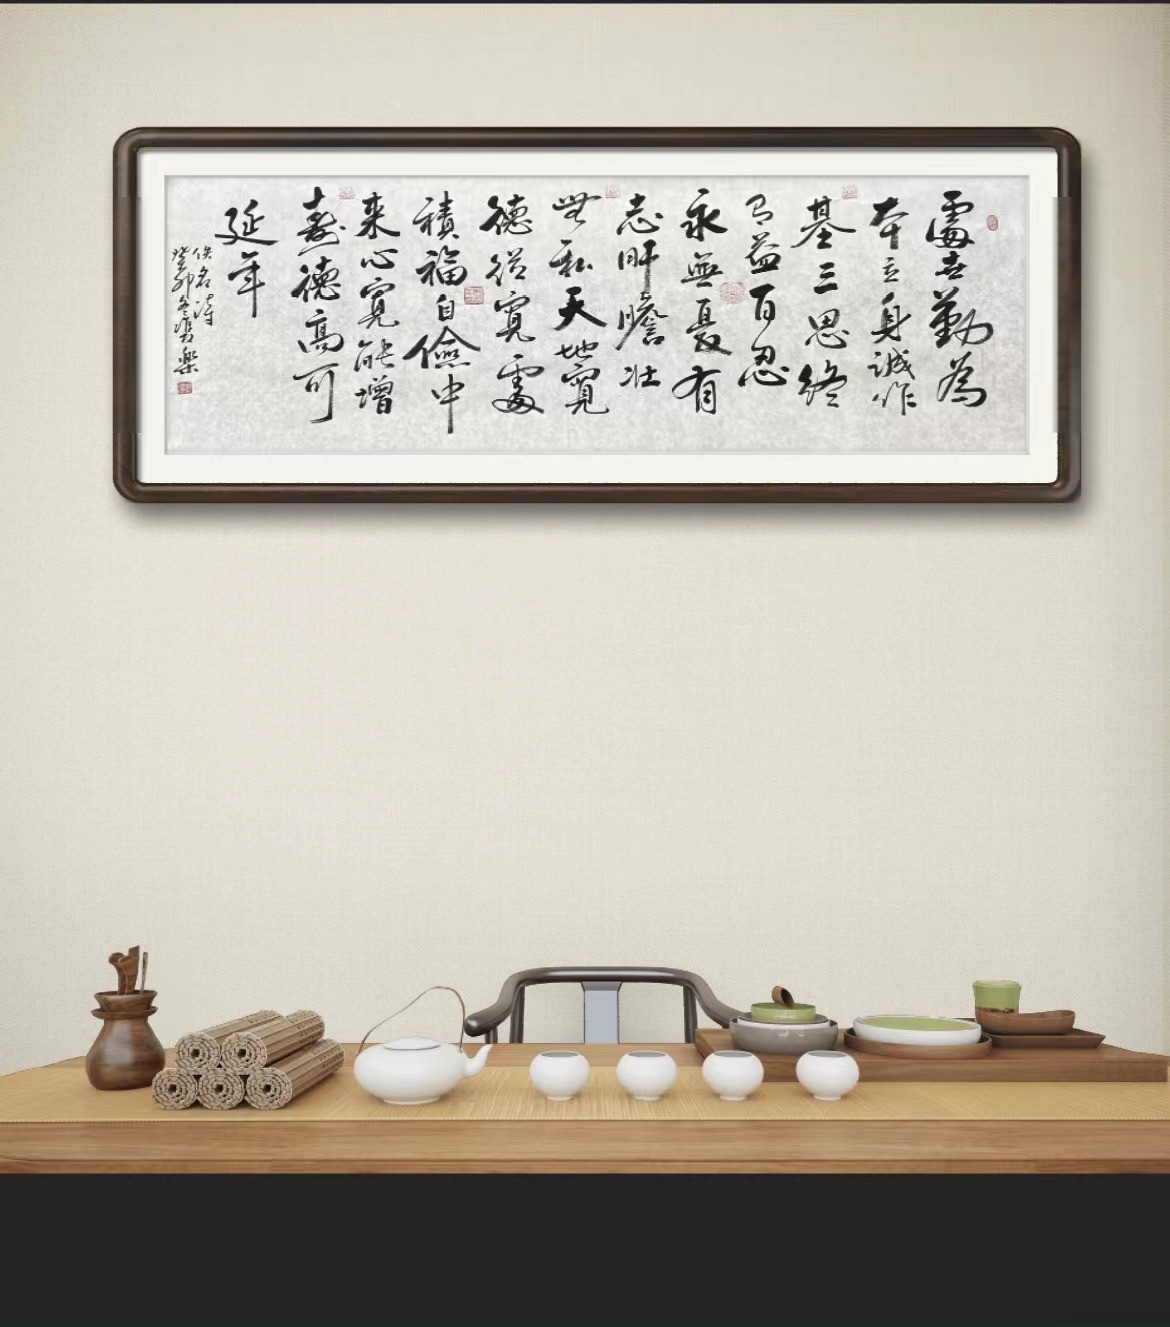 處世勤為
本立身誠作
基三思終
有益百忍
永無憂有
志肝膽壯
無私天地寬
德從寬處
積福自儉中
来心寬能增
壽德高可
延年
佚名诗
癸卯冬